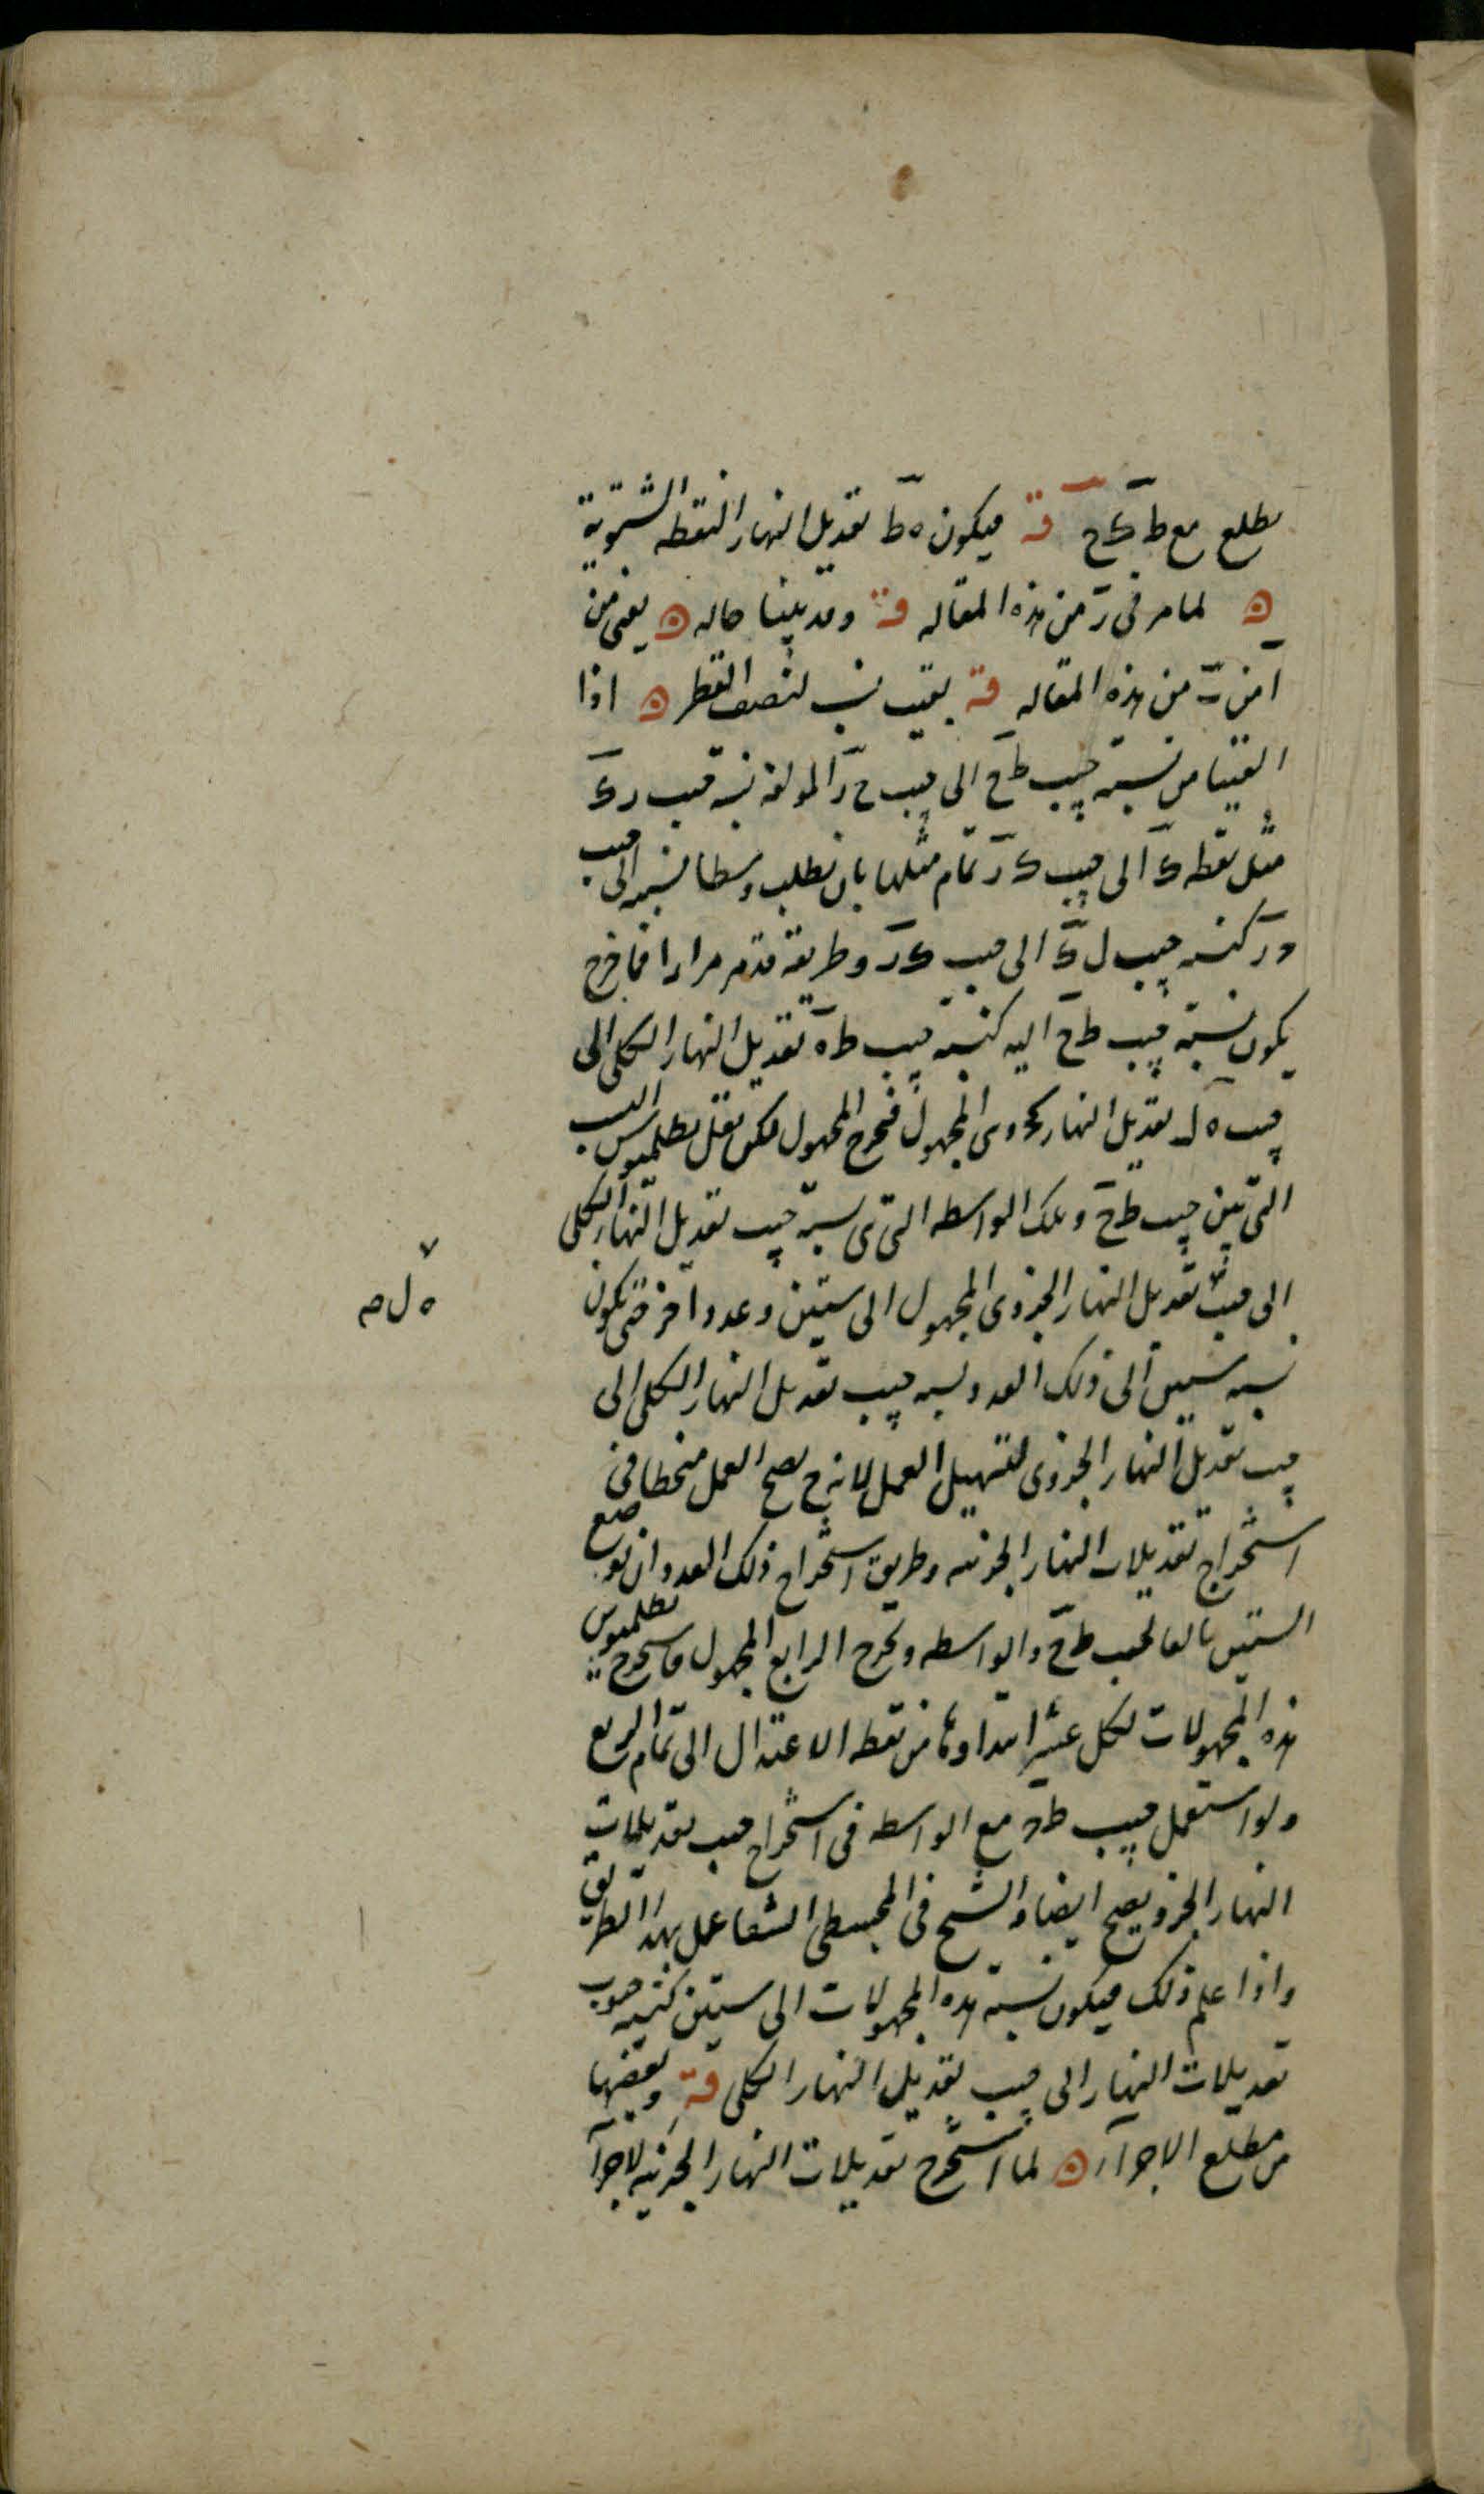 يطلع مع ط ك ح قه فيكون ه ط تعديل النهار النقطه الشتوية
لما مر فى ر من هذه المقاله قه وقد بينا حاله يعنى من
آ من ب من هذه المقاله قه بقيت نسب لنصف القطر اذا
القينا من نسبة جيب ط ح الى جيب ح ر المولفه نسبة جيب ر ك
مثل نقطه ك الى جيب ك ر تمام مثلها بان نطلب وسطا نسبه الى جيب
ح ر كنسبه جيب ل ك الى جيب ك ر وطريقه قد مر مرارا فما خرج
يكون نسبة جيب ط ح اليه كنسبة جيب ط ه تعديل النهار الكلى الى
جيب ه ل تعديل النهار الجزوى المجهول فنخرج المجهول لكن نقل بطلميوس النسب
التى بين جيب ط ح وتلك الواسطه التى هى نسبة جيب تعديل النهار الكلى
الى جيب تعديل النهار الجزوى المجهول الى ستين وعدد اخر حتى تكون
نسبه ستين الى ذلك العدد نسبه جيب تعديل النهار الكلى الى
جيب تعديل النهار الجزوى لتسهيل العمل لانه ح يصح العمل منحطا فى
استخراج تعديلات النهار الجزئيه وطريق استخراج ذلك العدد ان نوضع
الستين تالفا لجيب ط ح والواسطه ونخرج الرابع المجهول فاستخرج بطلميوس
هذه المجهولات لكل عشر ابتداوها من نقطه الاعتدال الى تمام الربع
ولو استعمل جيب ط ح مع الواسطه فى استخراج جيب تعديلات
النهار الجزو يصح ايضا والشيخ فى المجسطى الشفا عمل بهذا الطريق
واذا علم ذلك فيكون نسبة هذه المجهولات الى ستين كنسبه جيوب
تعديلات النهار الى جيب تعديل النهار الكلى قه وبعضها
من مطلع الاجزآء لما استخرج تعديلات النهار الجزئيه لاجزآ
ه ل صه